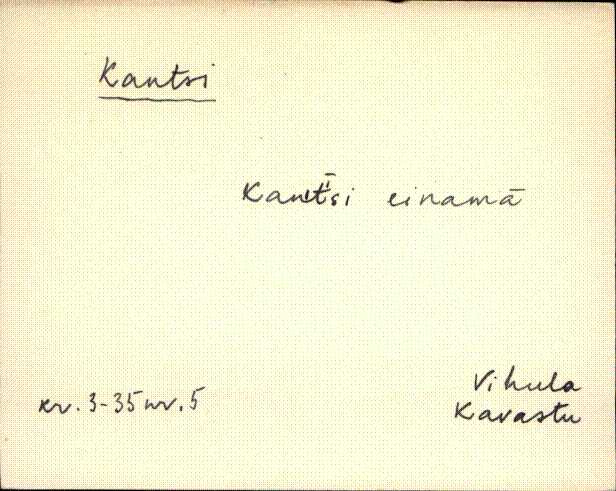 Kantsi
Kant́si einamā
kv. 3-35 nr. 5
Vihula
Kavastu